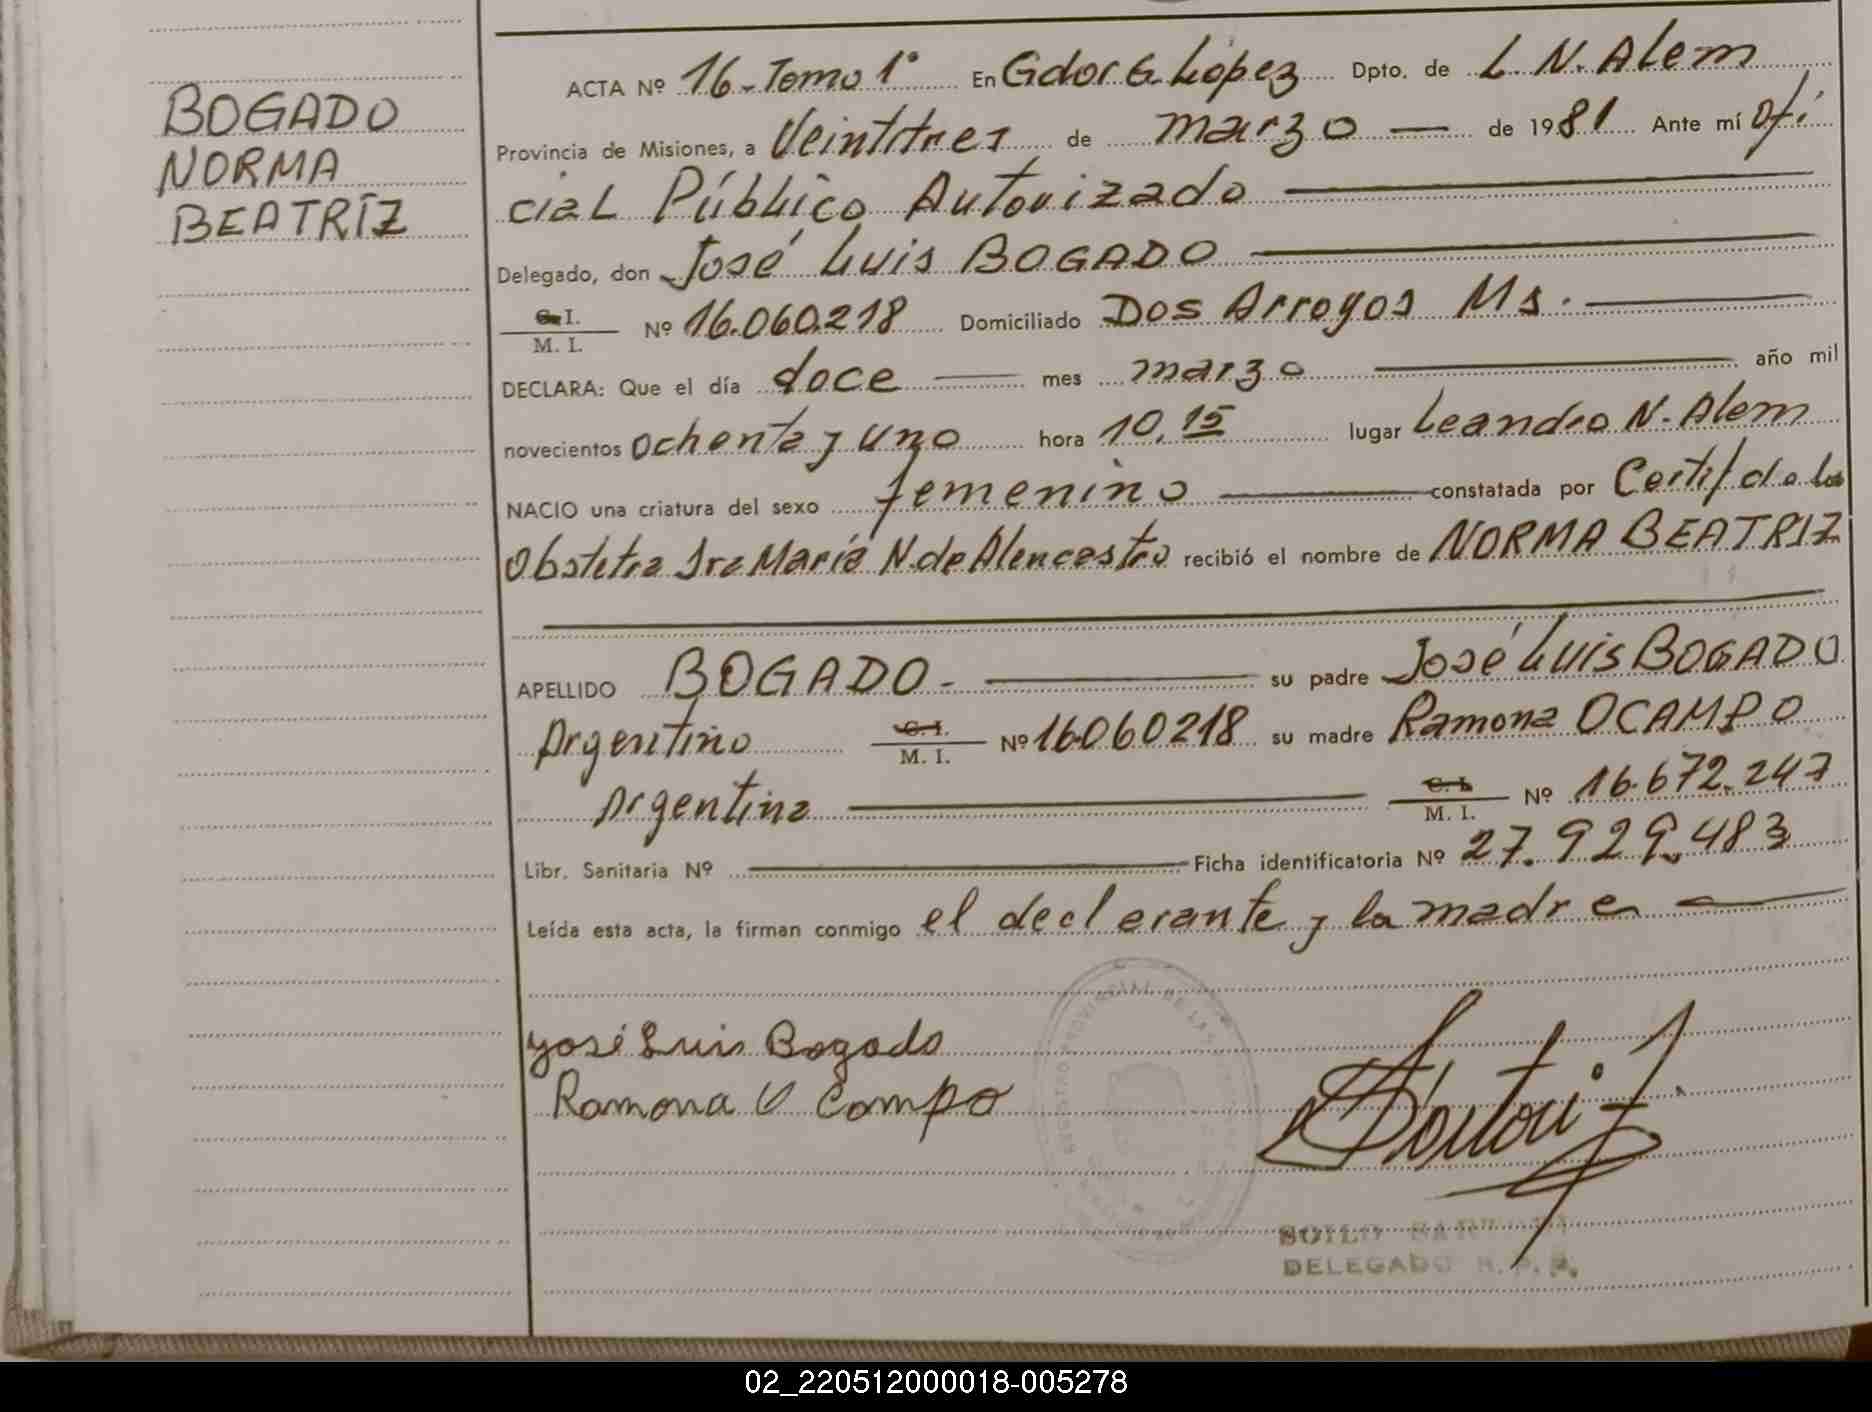 BOGADO
NORMA
BEATRÍZ
ACTA Nº 16-Tomo 1º En Gdor G. López Dpto. de L. N. Alem
Provincia de Misiones, a Veintitres de marzo — de 1981 Ante mí Ofi
cial Público Autorizado
Delegado, don José Luis BOGADO
C. I.
M. I. Nº 16.060.218 Domiciliado Dos Arroyos Ms.
DECLARA: Que el día doce mes marzo año mil
novecientos ochenta y uno hora 10,15 lugar Leandro N. Alem
NACIO una criatura del sexo femenino constatada por Certif de la
Obstetra Sra María N. de Alencastro recibió el nombre de NORMA BEATRIZ
APELLIDO BOGADO. su padre José Luis BOGADO
Argentino C. I.
M. I. Nº 16060218 su madre Ramona OCAMPO
Argentina C. I.
M. I. Nº 16.672.247
Libr. Sanitaria Nº Ficha identificatoria Nº 27.929.483
Leída esta acta, la firman conmigo el declerante y la madre
José Luis Bogado
Ramona O Campo
REGISTRO PROVINCIAL DE LAS
DELEGADO R. P. P.
02_220512000018-005278